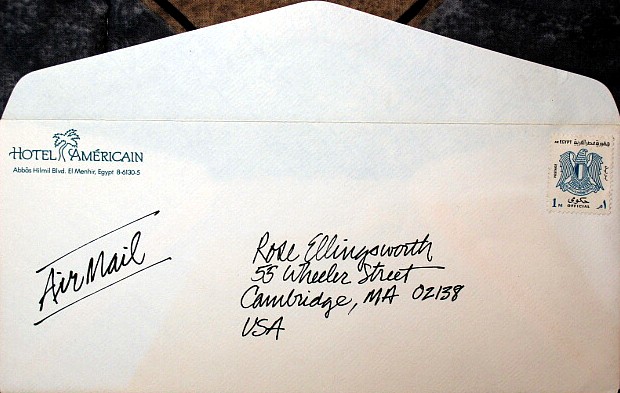 HOTEL AMÉRICAIN
Abbås Hilmil Blvd. El Menhir, Egypt 8-6130-5
AR EGYPT جمهورية مصر العربية
POSTAGE
حكومى
1 م
OFFICIAL
Air Mail
Rose Ellingsworth
55 Wheeler Street
Cambridge, MA 02138
USA